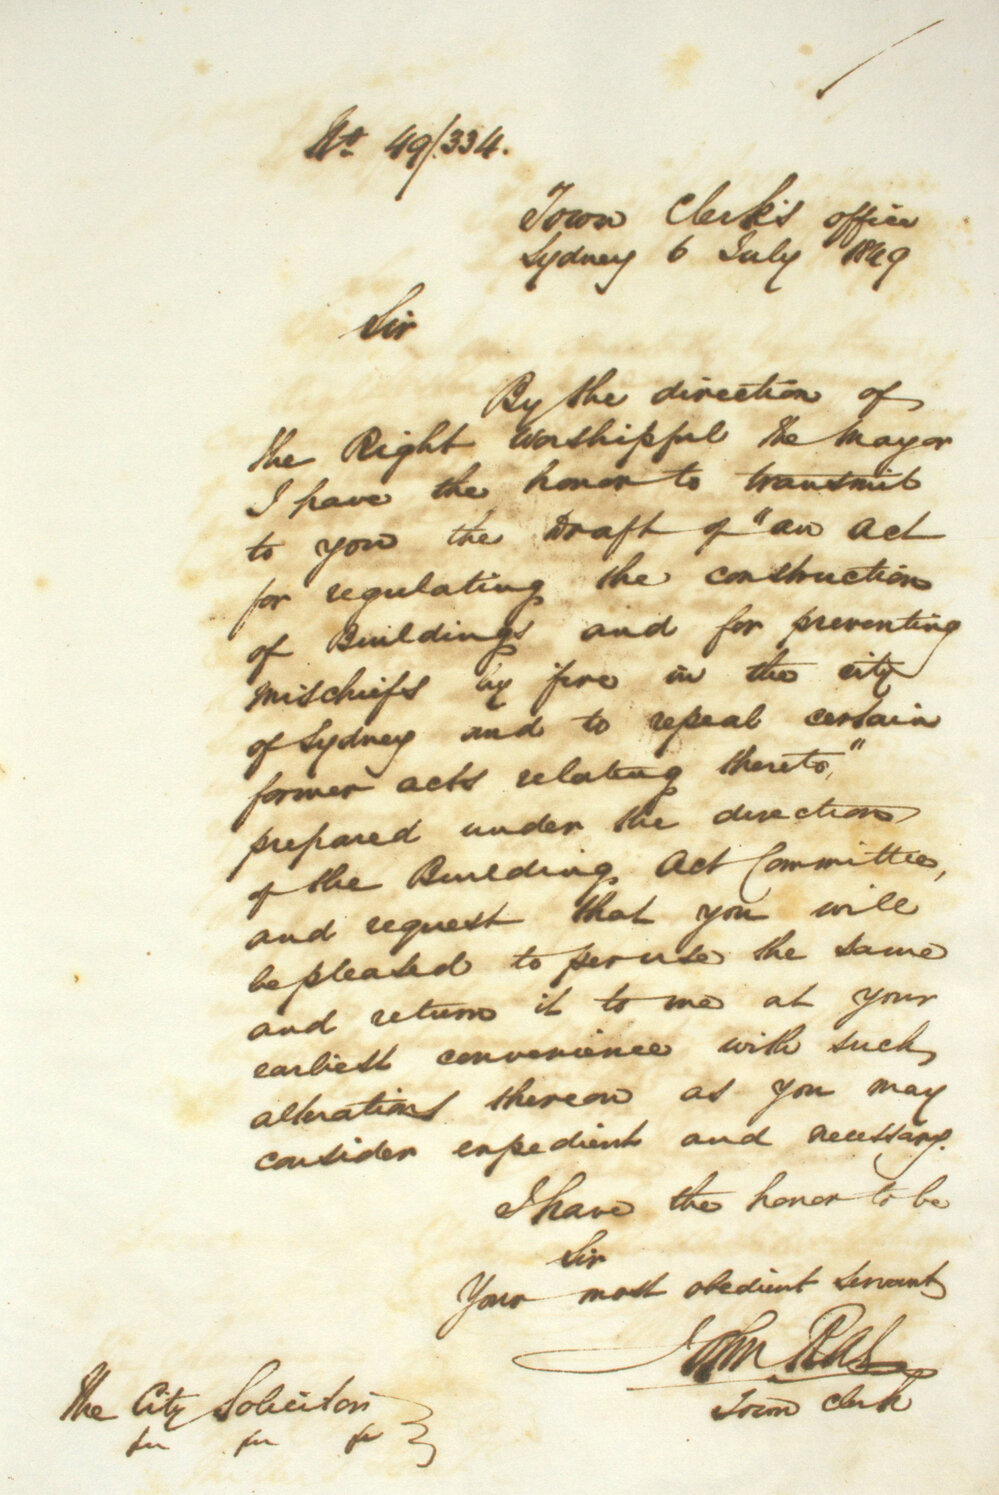 No. 49/.334.
Town Clerk's office
Sydney 6 July 1849
Sir
By the direction of
the Right Worshipful the Mayor
I have the honor to transmit
to you the Draft of "an Act
for regulating the construction
of Buildings and for preventing
mischiefs by fire in the city
of Sydney and to repeal certain
former acts relating thereto,"
prepared under the direction
of the Building Act Committee,
and request that you will
be pleased to peruse the same
and return it to me at your
earliest convenience with such
alterations thereon as you may
consider expedient and necessary.
I have the honor to be
Sir
Your most obedient servant
John Rae
Town Clerk
The City Solicitor